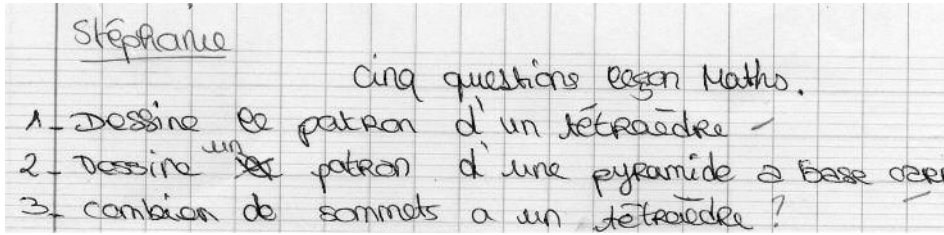 Stéphanie
Cinq questions leçon Maths.
1_ Dessine le patron d'un tétraèdre -
2_ Dessine un patron d'une pyramide a base carr
3_ combien de sommets a un tétraèdre ?